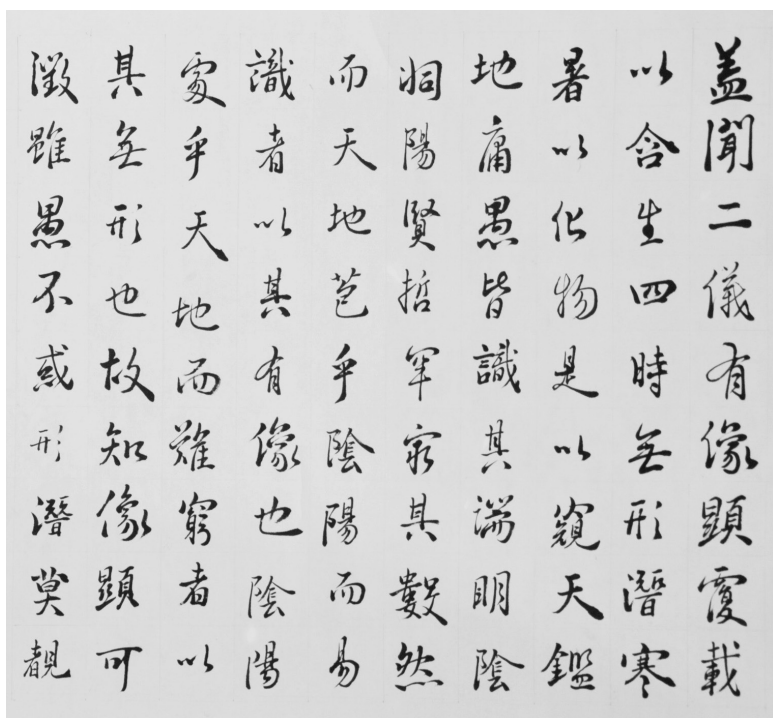 蓋聞二儀有像顯覆載
以含生四時無形潛寒
暑以化物是以窺天鑑
地庸愚皆識其端明陰
洞陽賢哲罕窮其數然
而天地苞乎陰陽而易
識者以其有像也陰陽
處乎天地而難窮者以
其無形也故知像顯可
徵雖愚不惑形潛莫覩